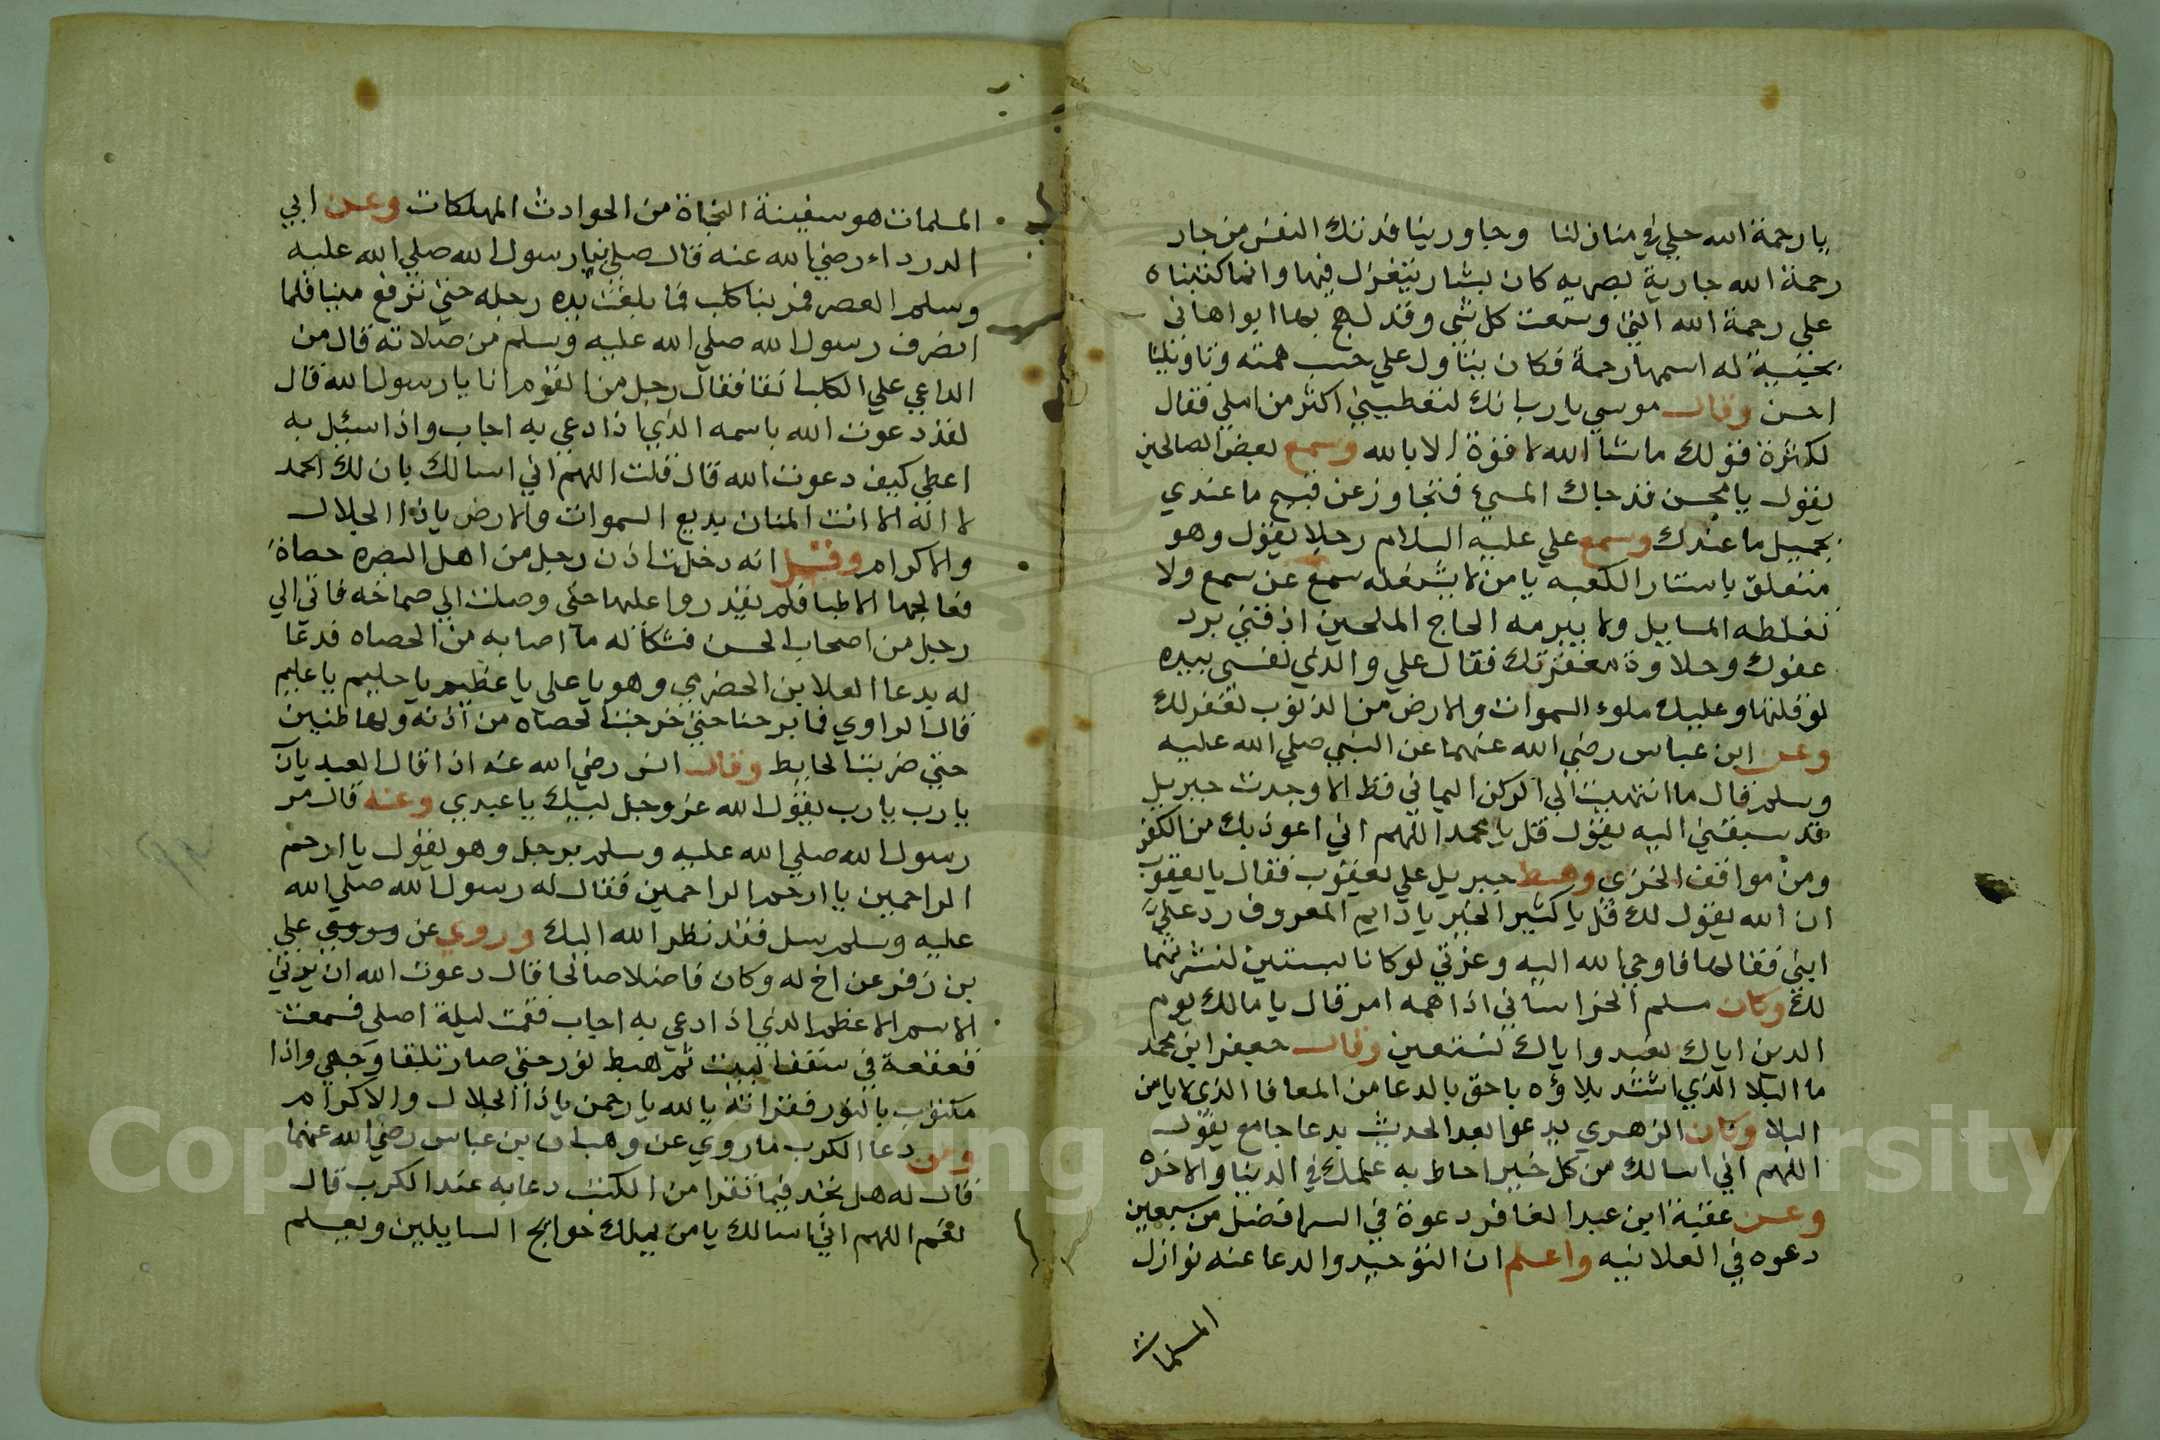 يا رحمة الله حلي في منازلنا وجاورينا فدتك النفس من جار
رحمة الله جارية بصريه كان بشار يتغزل فيها وانما كتبناه
علي رحمة الله التي وسعت كل شي وقد لهج بها ابو اهاني
بحنينة له اسمها رحمة فكان يتناول علي حسب همته وتاويلنا
احسن وقال موسي يا رب انك لتعطيني اكثر من املي فقال
لكثرة قولك ما شا الله لا قوة الا بالله وسمع بعض الصالحين
يقول يا محسن قد جاك المسيء فتجاوز عن قبيح ما عندي
بجميل ما عندك وسمع علي عليه السلام رجلا يقول وهو
متعلق باستار الكعبه يا من لا يشغله سمع عن سمع ولا
تغلطه المسايل ولا يبرمه الحاح الملحين اذقني برد
عفوك وحلاوة مغفرتك فقال علي والذي نفسي بيده
لو قلتها وعليك ملوء السموات والارض من الذنوب لغفر لك
وعن ابن عباس رضي الله عنهما عن النبي صلي الله عليه
وسلم قال ما انتهيت الي الركن اليماني قط الا وجدت جبريل
قد سبقني اليه يقول قل يا محمد اللهم اني اعوذ بك من الكفر
ومن مواقف الخزي وهبط جبريل علي يعقوب فقال يا يعقوب
ان الله يقول لك قل يا كثير الخير يا دايم المعروف رد علي
ابني فقالها فاوحي الله اليه وعزتي لو كانا ميتين لنشرتهما
لك وكان مسلم الخراساني اذا اهمه امر قال يا مالك يوم
الدين اياك نعبد واياك نستعين وقال جعفر ابن محمد
ما البلا الذي اشتد بلاؤه باحق بالدعا من المعافا الذي لا يامن
البلا وكان الزهري يدعوا بعد الحديث بدعا جامع يقول
اللهم اني اسالك من كل خير احاط به علمك في الدنيا والاخره
وعن عقبة ابن عبد الغافر دعوة في السر افضل من سبعين
دعوه في العلانيه واعلم ان التوحيد والدعا عنه نوازل
الملمات
الملمات هو سفينة النجاة من الحوادث المهلكات وعن ابي
الدرداء رضي الله عنه قال صلي بنا رسول الله صلي الله عليه
وسلم العصر فمر بنا كلب فما بلغت يده رجله حتي نزفع ميتا فلما
انصرف رسول الله صلي الله عليه وسلم من صلاته قال من
الداعي علي الكلب انفا فقال رجل من القوم انا يا رسول الله قال
لقد دعوت الله باسمه الذي اذا دعي به اجاب واذا سئل به
اعطي كيف دعوت الله قال قلت اللهم اني اسالك بان لك الحمد
لا اله الا انت المنان بديع السموات والارض يا ذا الجلال
والاكرام وقيل انه دخلت اذن رجل من اهل البصره حصاة
فعالجها الاطبا فلم يقدروا عليها حتي وصلت الي صماخه فاتي الي
رجل من اصحاب الحسن فشكا له ما اصابه من الحصاه فدعا
له بدعا العلا بن الحضرمي وهو يا علي يا عظيم يا حليم يا عليم
قال الراوي فما برحنا حتي خرجت الحصاه من اذنه ولها طنين
حتي ضربت الحايط وقال انس رضي الله عنه اذا قال العبد يا رب
يا رب يا رب يقول الله عز وجل لبيك يا عبدي وعنه قال مر
رسول الله صلي الله عليه وسلم برجل وهو يقول يا ارحم
الراحمين يا ارحم الراحمين فقال له رسول الله صلي الله
عليه وسلم سل فقد نظر الله اليك وروي عن علي
بن زفر عن اخ له وكان فاضلا صالحا قال دعوت الله ان يريني
الاسم الاعظم الذي اذا دعي به اجاب فقمت ليلة اصلي فسمعت
قعقعة في سقف البيت ثم هبط نور حتي صار تلقا وجهي واذا
مكتوب بالنور فقراته يا الله يا رحمن يا ذا الجلال والاكرام
ومن دعا الكرب ما روي عن وهب ان بن عباس رضي الله عنهما
قال له هل تجد فيما تقرا من الكتب دعا به عند الكرب قال
نعم اللهم اني اسالك يا من يملك حوايج السايلين ويعلم